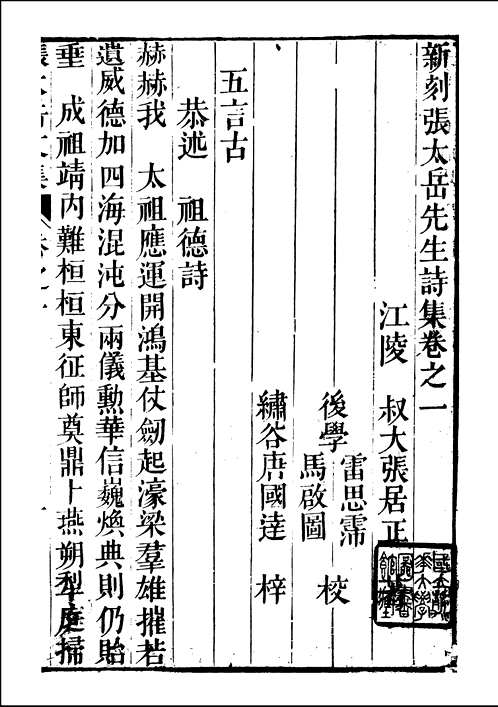 新刻張太岳先生詩集卷之一
江陵　叔大張居正
後學
雷思霈
馬啟圖
校
繡谷唐國達　梓
五言古
恭述　祖德詩
赫赫我　太祖應運開鴻基仗劒起濠梁羣雄摧若
遺威德加四海混沌分兩儀勲華信巍煥典則仍貽
垂　成祖靖內難桓桓東征師奠鼎卜燕朔犁庭掃